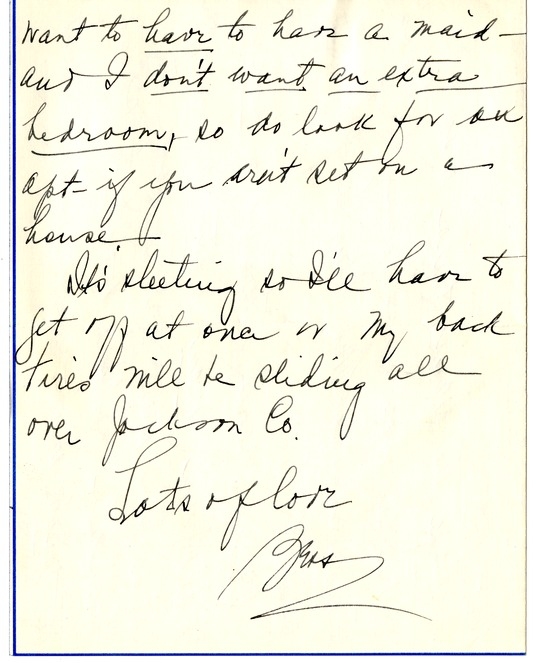 want to have to have a maid -
and I don't want an extra
bedroom, so do look for an
apt - if you aren't set on a
house. -
It's sleeting so I'll have to
get off at once or my back
tires will be sliding all
over Jackson Co.
Lots of love
Bess